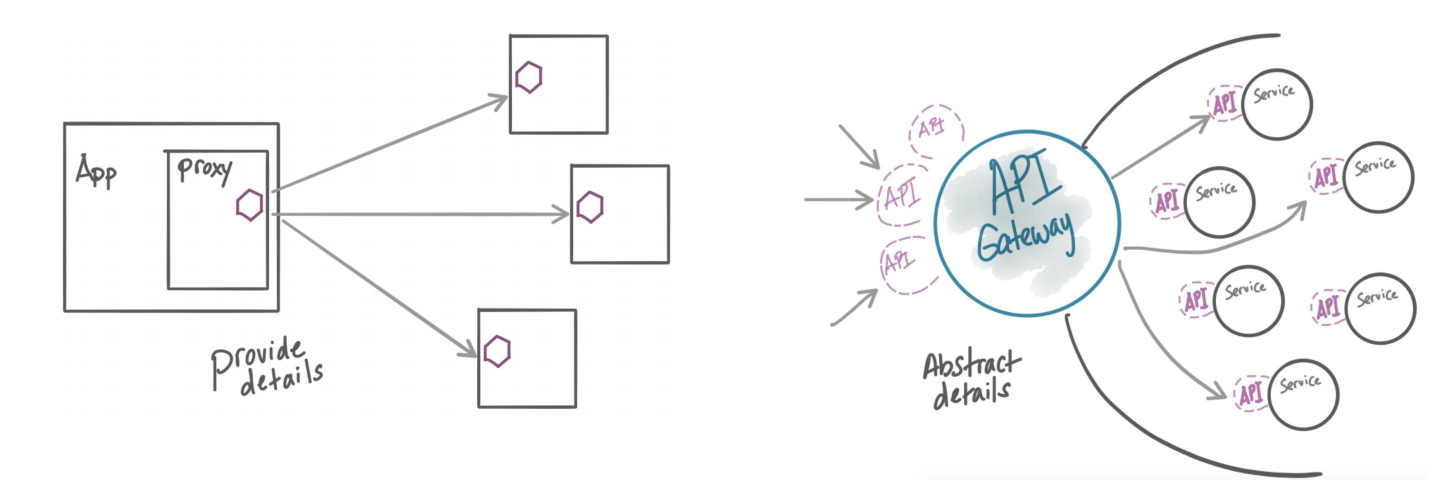 App
proxy
provide
details
API
API
API
API
Gateway
Abstract
details
API
Service
API
Service
API
Service
API
Service
API
Service
API
Service